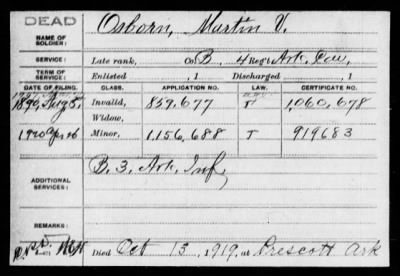 DEAD
Osborn, Martin V.
NAME OF SOLDIER:
SERVICE: Late rank, Co. B, 4 Reg't Ark. Cav.
TERM OF SERVICE: Enlisted , 1 Discharged , 1
DATE OF FILING. CLASS. APPLICATION NO. LAW. CERTIFICATE NO.
1890, Aug 5, Invalid, 859,677 1,060,678
Widow,
1920 Apr 26 Minor, 1,156,688 T 919683
ADDITIONAL SERVICES: B. 3, Ark. Inf,
REMARKS:
Died Oct 13, 1919, at Prescott Ark